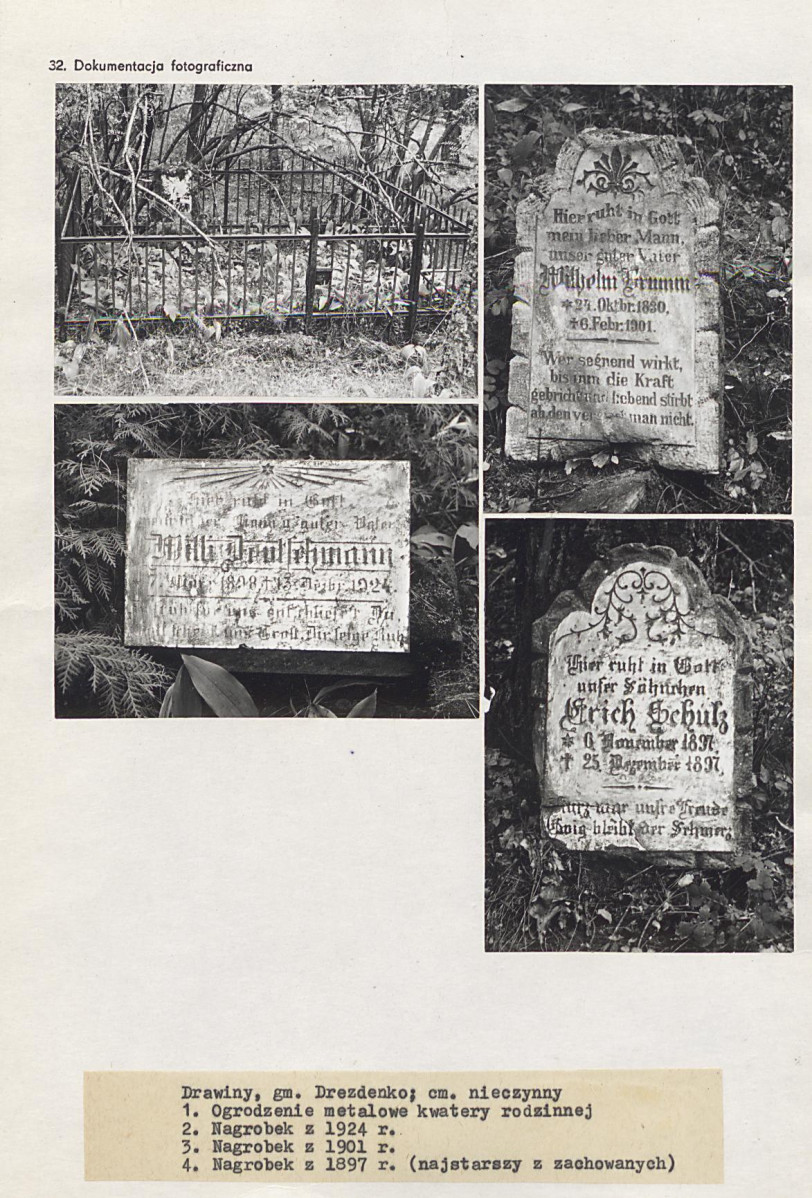 32. Dokumentacja fotograficzna
Hier ruht in Gott
mein lieber Mann,
unser guter Vater
Wilhelm Krumm
* 24. Oktbr. 1830,
† 6. Febr. 1901.
Wer segnend wirkt,
bis ihm die Kraft
gebricht und liebend stirbt
ah, den man nicht.
Hier ruht in Gott
guter Vater
Willi Deutschmann
1898 † 13. 1924
Hier ruht in Gott
unser Söhnchen
Erich Schulz
* 6. November 1897.
† 25. Dezember 1897.
Kurz war unsre Freude
Ewig bleibt der Schmerz
Drawiny, gm. Drezdenko; cm. nieczynny
1. Ogrodzenie metalowe kwatery rodzinnej
2. Nagrobek z 1924 r.
3. Nagrobek z 1901 r.
4. Nagrobek z 1897 r. (najstarszy z zachowanych)